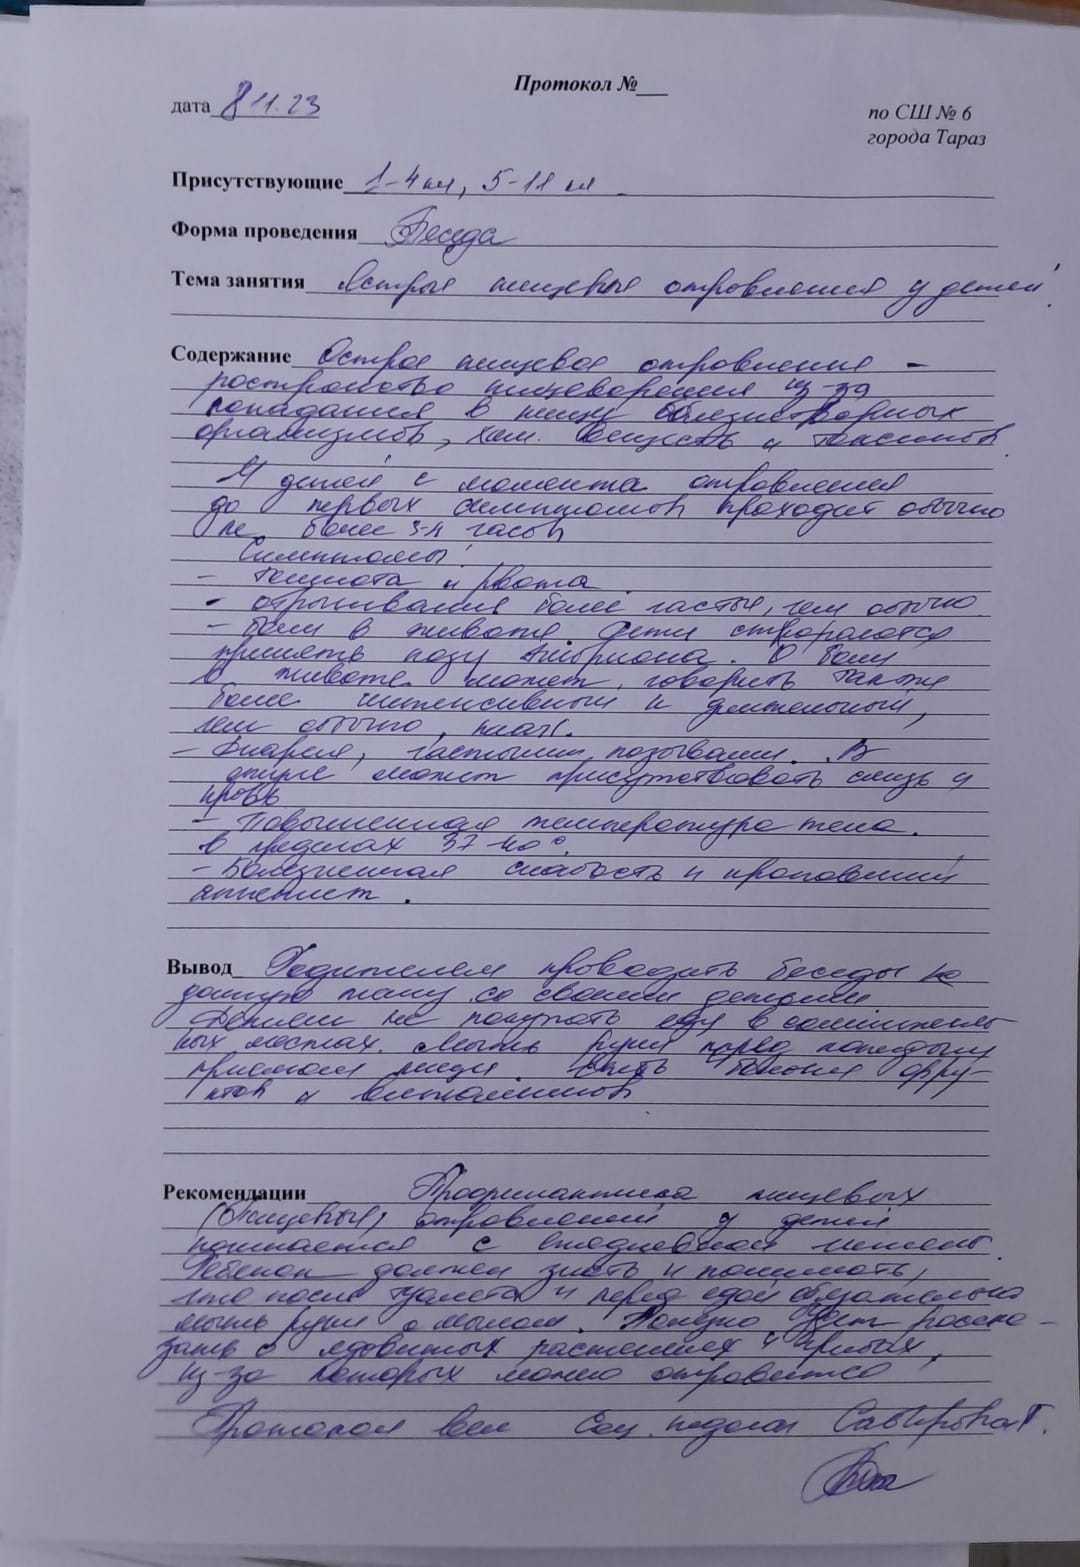 Протокол №___
дата 8 11. 23
по СШ № 6
города Тараз
Присутствующие 1-4 кл, 5-11 кл
Форма проведения Беседа
Тема занятия Острые пищевые отровления у детей.
Содержание Острое пищевое отровление -
ростройство пищеворения из-за
попадания в пищу болезнетворных
организмов, хим. веществ и токсинов.
У детей с момента отровления
до первых симптомов проходит обычно
не более часов
Симптомы:
- Тошнота и рвота
- отрыгивания более частые, чем обычно
- боли в животе. Дети стораются
принять позу эмбриона. О боли
в животе может говорить также
более интенсивный и длительный,
чем обычно, плач.
- Диарея, частыми позывами. В
стуле может присутствовать слизь и
кровь
- Повышенная температура тела.
в пределах 37-40°.
- Болезненная слабость и пропавший
аппетит.
Вывод Родителям проводить беседы на
данную тему со своими детьми
Детям не покупать еду в сомнитель-
ных местах. Мыть руки перед каждым
приемом пищи. фру-
ктов и витаминов
Рекомендации Профилактика пищевых
(Пищевых) отровлений у детей
начинается с ежедневной гигиены.
Ребенок должен знать и понимать,
что после туалета и перед едой обязательно
мыть руки с мылом. Полезно будет расска-
зать о ядовитых растениях и грибах,
из-за которых можно отровится
Протокол вел Соц. педагог Г.